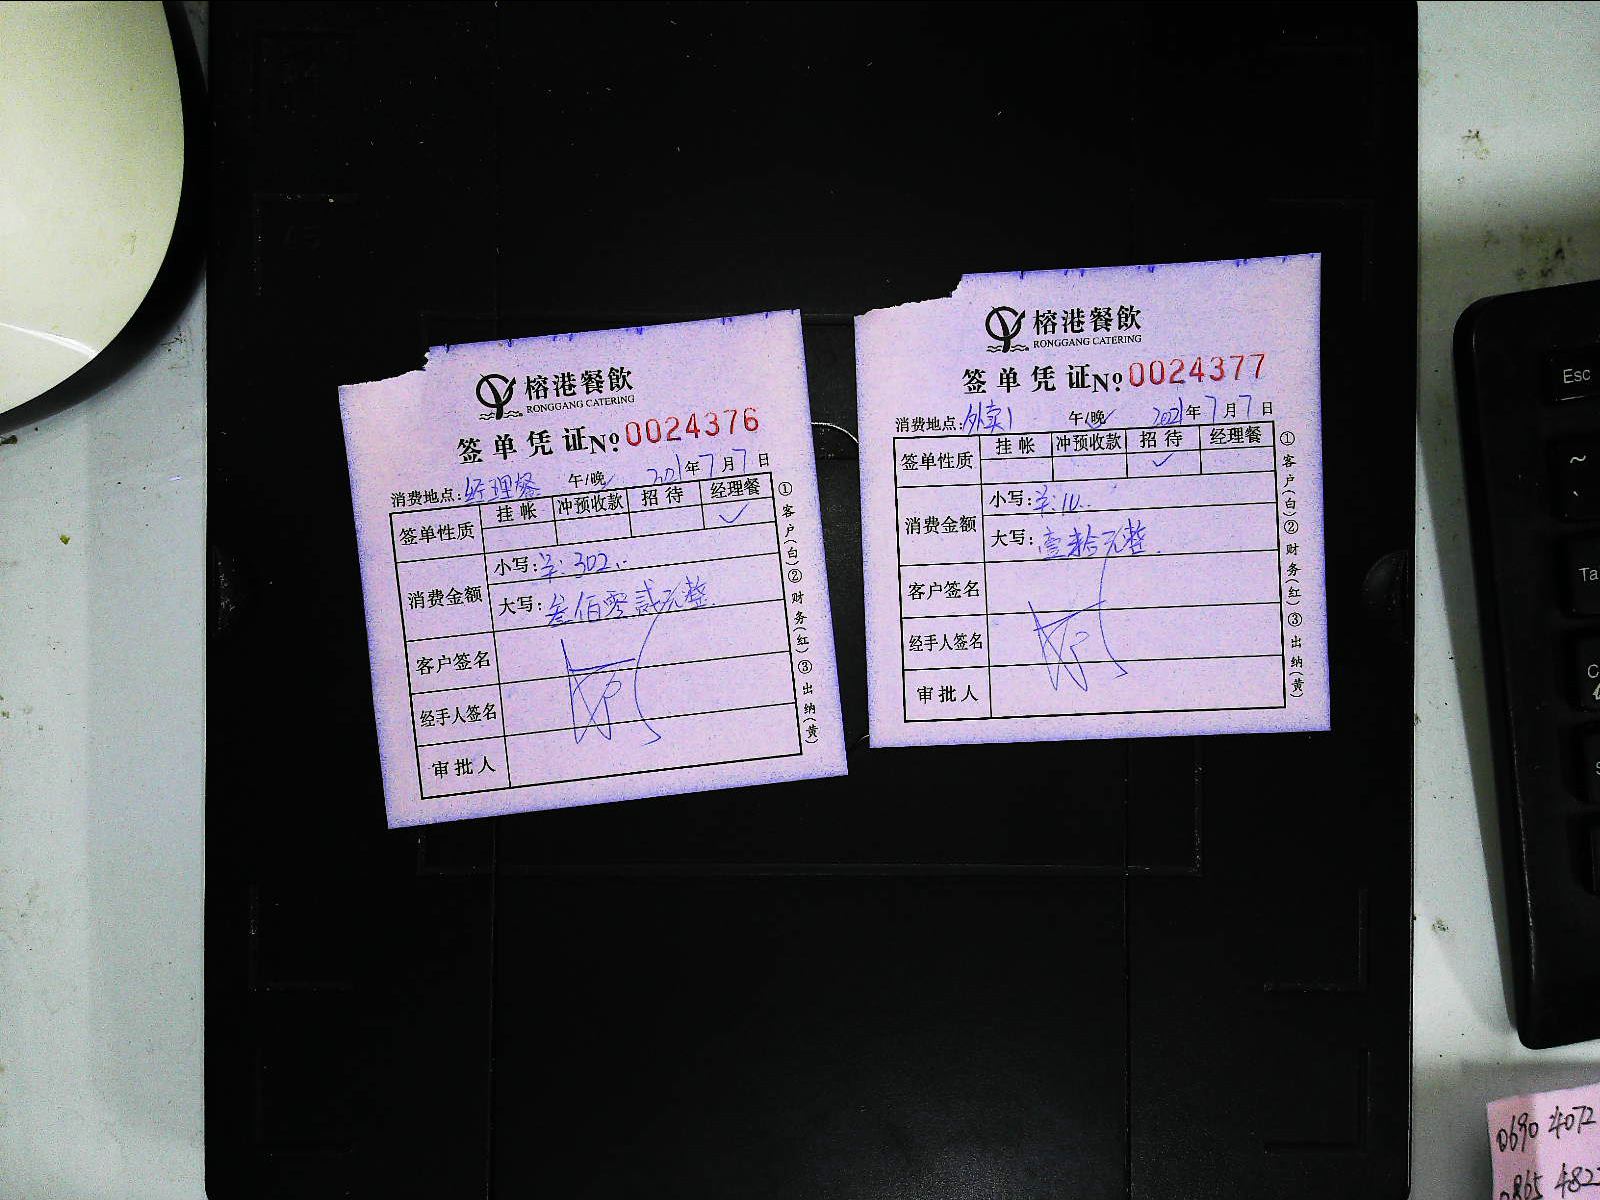 榕港餐飲
RONGGANG CATERING
签单凭证No 0024376
消费地点:经理餐 午/晚 2021年7月7日
签单性质 挂帐 冲预收款 招待 经理餐
✓
消费金额
小写:¥:302..
大写:叁佰零贰元整.
客户签名
经手人签名
审批人
①客户(白)②财务(红)③出纳(黄)
榕港餐飲
RONGGANG CATERING
签单凭证No 0024377
消费地点:外卖1 午/晚 2021年7月7日
签单性质 挂帐 冲预收款 招待 经理餐
✓
消费金额
小写:¥:10..
大写:壹拾元整.
客户签名
经手人签名
审批人
①客户(白)②财务(红)③出纳(黄)
Esc
~
0690 4072